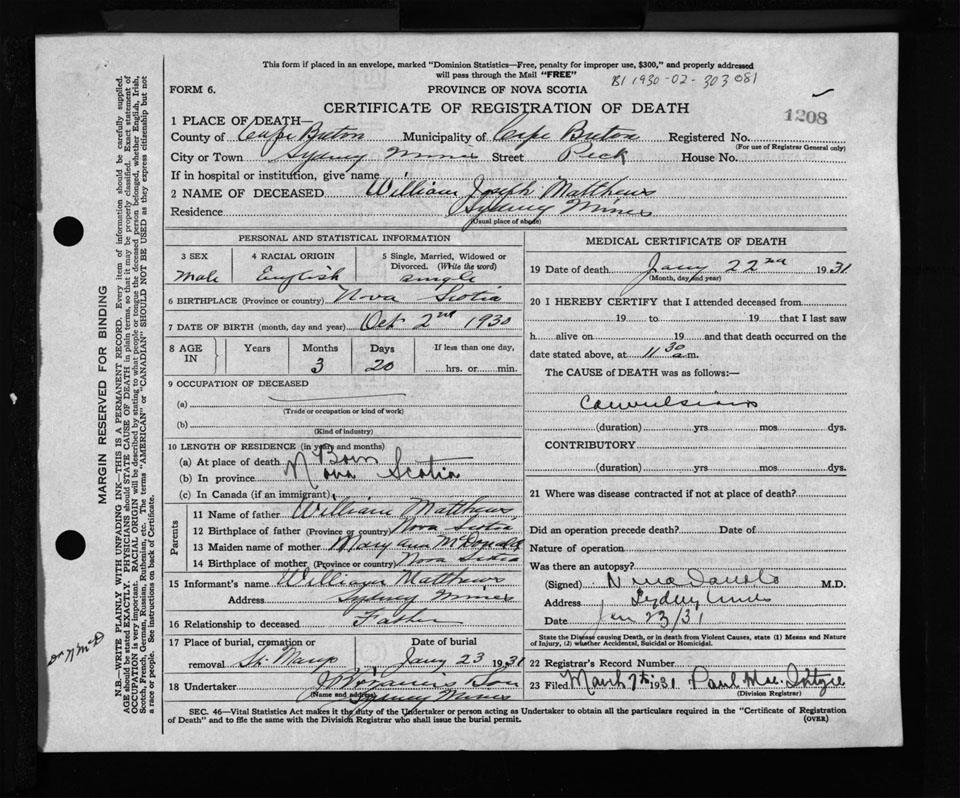 This form if placed in an envelope, marked "Dominion Statistics—Free, penalty for improper use, $300," and properly addressed
will pass through the Mail "FREE"
B1 1930-02-303081
FORM 6.
PROVINCE OF NOVA SCOTIA
CERTIFICATE OF REGISTRATION OF DEATH
1208
1 PLACE OF DEATH—
County of Cape Breton Municipality of Cape Breton Registered No.
(For use of Registrar General only)
City or Town Sydney Mines Street Peck House No.
If in hospital or institution, give name
2 NAME OF DECEASED William Joseph Matthews
Residence Sydney Mines
(Usual place of abode)
PERSONAL AND STATISTICAL INFORMATION
3 SEX
Male
4 RACIAL ORIGIN
English
5 Single, Married, Widowed or
Divorced. (Write the word)
single
6 BIRTHPLACE (Province or country) Nova Scotia
7 DATE OF BIRTH (month, day and year) Oct 2nd 1930
8 AGE
IN
Years
Months
3
Days
20
If less than one day,
hrs. or min.
9 OCCUPATION OF DECEASED
(a)
(Trade or occupation or kind of work)
(b)
(Kind of industry)
10 LENGTH OF RESIDENCE (in years and months)
(a) At place of death Born
(b) In province Nova Scotia
(c) In Canada (if an immigrant)
Parents
11 Name of father William Matthews
12 Birthplace of father (Province or country) Nova Scotia
13 Maiden name of mother Mary Ann McDonald
14 Birthplace of mother (Province or country) Nova Scotia
15 Informant's name William Matthews
Address Sydney Mines
16 Relationship to deceased Father
17 Place of burial, cremation or
Date of burial
removal St. Marys Jany 23 1931
18 Undertaker & Son
(Name and address) Sydney Mines
MEDICAL CERTIFICATE OF DEATH
19 Date of death Jany 22nd 1931
(Month, day and year)
20 I HEREBY CERTIFY that I attended deceased from
19 to 19 that I last saw
h alive on 19 and that death occurred on the
date stated above, at 11.30 a.m.
The CAUSE of DEATH was as follows:—
Convulsions
(duration) yrs. mos. dys.
CONTRIBUTORY
(duration) yrs. mos. dys.
21 Where was disease contracted if not at place of death?
Did an operation precede death? Date of
Nature of operation
Was there an autopsy?
(Signed) M.D.
Address Sydney Mines
Date Jan 23/31
State the Disease causing Death, or in death from Violent Causes, state (1) Means and Nature
of Injury, (2) whether Accidental, Suicidal or Homicidal.
22 Registrar's Record Number
23 Filed March 7th 1931 Paul
(Division Registrar)
SEC. 46—Vital Statistics Act makes it the duty of the Undertaker or person acting as Undertaker to obtain all the particulars required in the "Certificate of Registration
of Death" and to file the same with the Division Registrar who shall issue the burial permit.
(OVER)
MARGIN RESERVED FOR BINDING
N.B.—WRITE PLAINLY WITH UNFADING INK—THIS IS A PERMANENT RECORD. Every item of information should be carefully supplied.
AGE should be stated EXACTLY. PHYSICIANS should STATE CAUSE OF DEATH in plain terms, so that it may be properly classified. Exact statement of
OCCUPATION is very important. RACIAL ORIGIN will be described by stating to what people or tongue the deceased person belonged, whether English, Irish,
Scotch, French, German, Russian, Ruthenian, etc. The terms "AMERICAN" or "CANADIAN" SHOULD NOT BE USED as they express citizenship but not
a race or people. See instructions on back of Certificate.